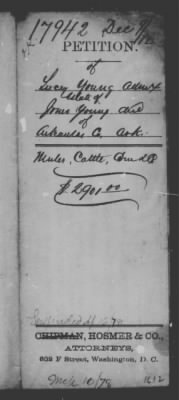 17942 Dec 
PETITION.
of
Lucy Young Admx
Estate of
Jones Young decd
of
Arkansas Co, Ark.
Mules, Cattle, Corn &c
$2901.00
CHIPMAN, HOSMER & CO.,
ATTORNEYS,
632 F Street, Washington, D. C.
1612